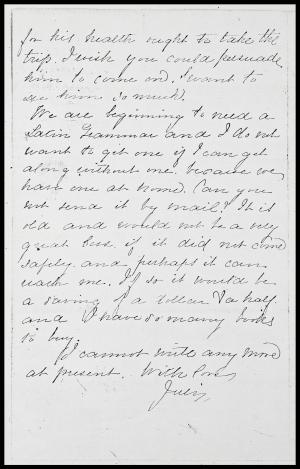 for his health ought to take the
trip. I wish you could persuade
him to come on. I want to
see him so much.
We are beginning to need a
Latin Grammar and I do not
want to get one if I can get
along without one. because we
have one at home. Can you
not send it by mail? It is
old and would not be a very
great loss if it did not come
safely. and perhaps it can
reach me. If so it would be
a saving of a dollar & a half.
and I have so many books
to buy.
I cannot write any more
at present. With love,